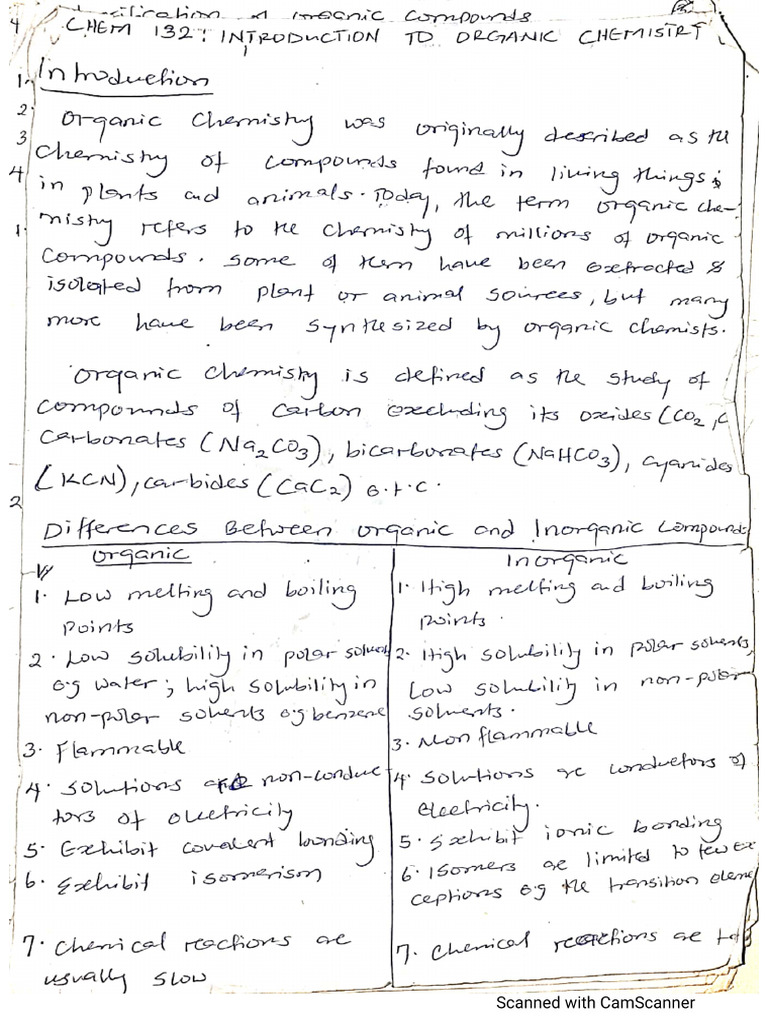 Organic Compounds
CHEM 132: INTRODUCTION TO ORGANIC CHEMISTRY
1. Introduction
2. Organic Chemistry was originally described as the
3 Chemistry of compounds found in living things
4 in plants and animals. Today, the term organic che-
1. mistry refers to the chemistry of millions of organic
compounds. some of them have been extracted &
isolated from plant or animal sources, but many
more have been synthesized by organic chemists.
Organic Chemistry is defined as the study of
compounds of carbon excluding its oxides (CO2, C
carbonates (Na2CO3), bicarbonates (NaHCO3), cyanides
(KCN), carbides (CaC2) e.t.c.
2
Differences Between organic and Inorganic Compounds
organic
1. Low melting and boiling
points
2. Low solubility in polar solvent
e.g water; high solubility in
non-polar solvents e.g benzene
3. Flammable
4. Solutions are non-conduc
tors of electricity
5. Exhibit covalent bonding
6. Exhibit isomerism
7. Chemical reactions are
usually slow
Inorganic
1. High melting and boiling
points.
2. High solubility in polar solvents,
Low solubility in non-polar
solvents.
3. Non flammable
4. Solutions are conductors of
electricity.
5. Exhibit ionic bonding
6. Isomers are limited to few ex
ceptions e.g the transition eleme
7. Chemical reactions are
Scanned with CamScanner